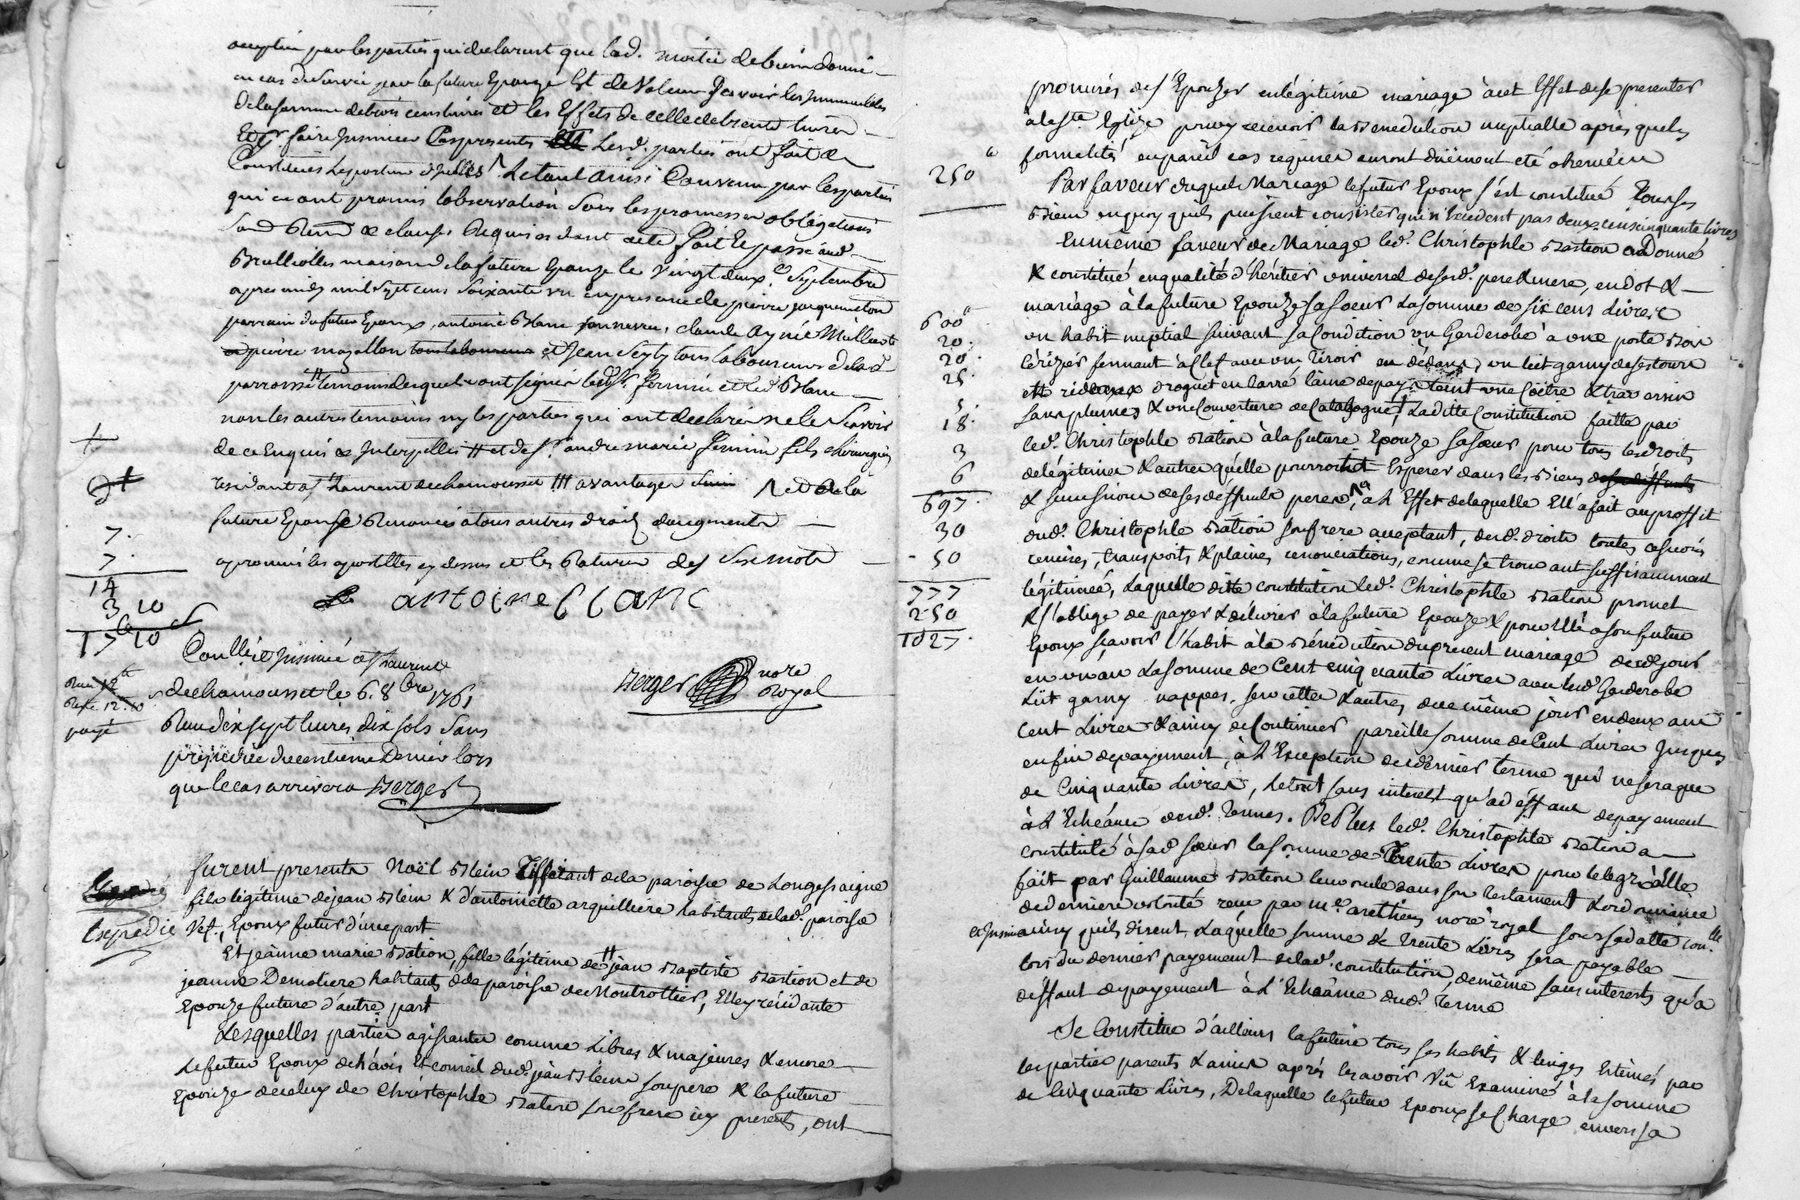 acceptées par les parties qui declarent que lad. moitié de biens donné
en cas de survie par la future Epouze Est de Valeur scavoir les Immeubles
de la somme de trois cens livres et les Effets de celle de trente livres
Et pr. faire Insinuer Ces presentes lesd. parties ont fait &
Constitués le porteur d'Icelles Le tout ainsi Convenu par les parties
qui en ont promis lobservation sous les promesses obligations
soub Renon & clauses Requises dont acte fait & passé aud.
Brullioles maison de la future Epouze le Vingt deux e. Septembre
apres midy mil sept cens soixante un en presence de pierre jacquemeton
parrain du futur Epoux, antoine Blanc son neveu, claude Aynée Mulleret
pierre mazallon et Jean Seyty tous laboureurs de lad.
parroisse temoins desquels ont signés led. sr. fermin et led. Blanc
non les autres temoins ny les parties qui ont declarés ne le scavoir
de ce Enquis & Interpellés # et de sr. andre marie fermin fils chirurgien
residant a st. Laurent de chamousset /// avantager ∧ et de la
future Epouse Renoncés a tous autres droits daugments
approuvés les apostilles cy dessus et les Ratures des six mots
antoine Blanc
7.
7.
14
3 10
17 10
Controllé & Insinué a st. laurent
de chamousset le 6. 8bre 1761
Reçu dix sept livres dix sols sans
prejudice du centieme Denier lors
que le cas arrivera Berger
Berger nore
Royal
payé
Expedié
furent presents Noël Blein Tissérant de la paroisse de Longessaigne
fils légitime de jean Blein & d'antoinette arquilliére habitants de lad. paroisse
Vef., Epoux futur d'une part
Et jeanne marie Bation, fille légitime de # jean Baptiste Bastion et de
jeanne Demoliere habitants de la paroisse de Montrottier, Elle y résidante
Epouze future d'autre part
Lesquelles parties agissantes comme Libres & majeures & encore
Le futur Epoux de l'avis & conseil dud. jean Blein son pere & la future
Epouze de celuy de Christophle Bation son frere icy presents, ont
promis des Epouzer en légitime mariage à cet Effet de se presenter
à la ste. Eglize pour y recevoir la Bénédiction nuptialle après que les
formalités en pareil cas requises auront dûément eté observées
Par faveur duquel Mariage le futur Epoux s'est constitué tous ses
Biens en quoy qu'ils puissent consister qui n'Excédent pas deux cens cinquante livres
En même faveur de Mariage led. Christophle Bastion a Donné
& constitué en qualité d'héritier universel de sesd. pere & mere, en dot &
mariage à la future Epouze sa soeur La somme de six cens livres,
un habit nuptial suivant sa Condition un Garderobe à une porte Bois
Cérizier fermant à clef avec un tiroir en dédans, un lict garny de ses tours
et rideaux droguet en barré laine de pays teint une Coëtre & traversin
sans plumes & une Couverture de Catalogne, Laditte Constitution faitte par
led. Christophle Bation à la future Epouze sa soeur pour tous les droits
de légitime & autres qu'elle pourroit Esperer dans les Biens
& successions de ses deffunts peres, à L'Effet de laquelle Elle a fait au proffit
dud. Christophle Bation son frere acceptant, desd. droits toutes cessions
remises, transports & plaines renonciations, comme se trouvant suffisamment
légitimée, Laquelle ditte constitution led. Christophle Bation promet
& s'oblige de payer & delivrer à la future Epouze & pour Elle a son futur
Epoux scavoir L'habit à la Bénédiction du present mariage de ce jour
en un an La somme de Cent cinquante Livres avec led. Garderobe
Lit garny nappes, serviettes & autres du même jour en deux ans
Cent Livres & ainsy de Continuer pareille somme de Cent Livres jusques
en fin de payement, à L'Exception du dernier terme qui ne sera que
de Cinquante Livres, Le tout sans interest qu'à deffaut de payement
à L'Echéance desd. termes. De Plus led. Christophle Bation a
constitué à sad. soeur la somme de Trente Livres pour le legs à Elle
fait par Guillaume Bation leur oncle dans son testament & ordonnance
de derniere volonté reçu par me. arethieu nore. royal sous sa datte con.lle
& Insinué ainsy qu'ils disent, Laquelle somme de Trente Livres sera payable
lors du dernier payement de lad. constitution, de même sans interests qu'a
deffaut de payement à L'Echéance dud. terme
Se Constitue d'ailleurs la future tous ses habits & linges Estimés par
les parties parents & amis après les avoir Vû Examiné à la somme
de Cinquante Livres, De laquelle le futur Epoux se Charge envers sa
250
600
20.
20.
25.
5.
18.
3
6
697.
30
50
777
250
1027.